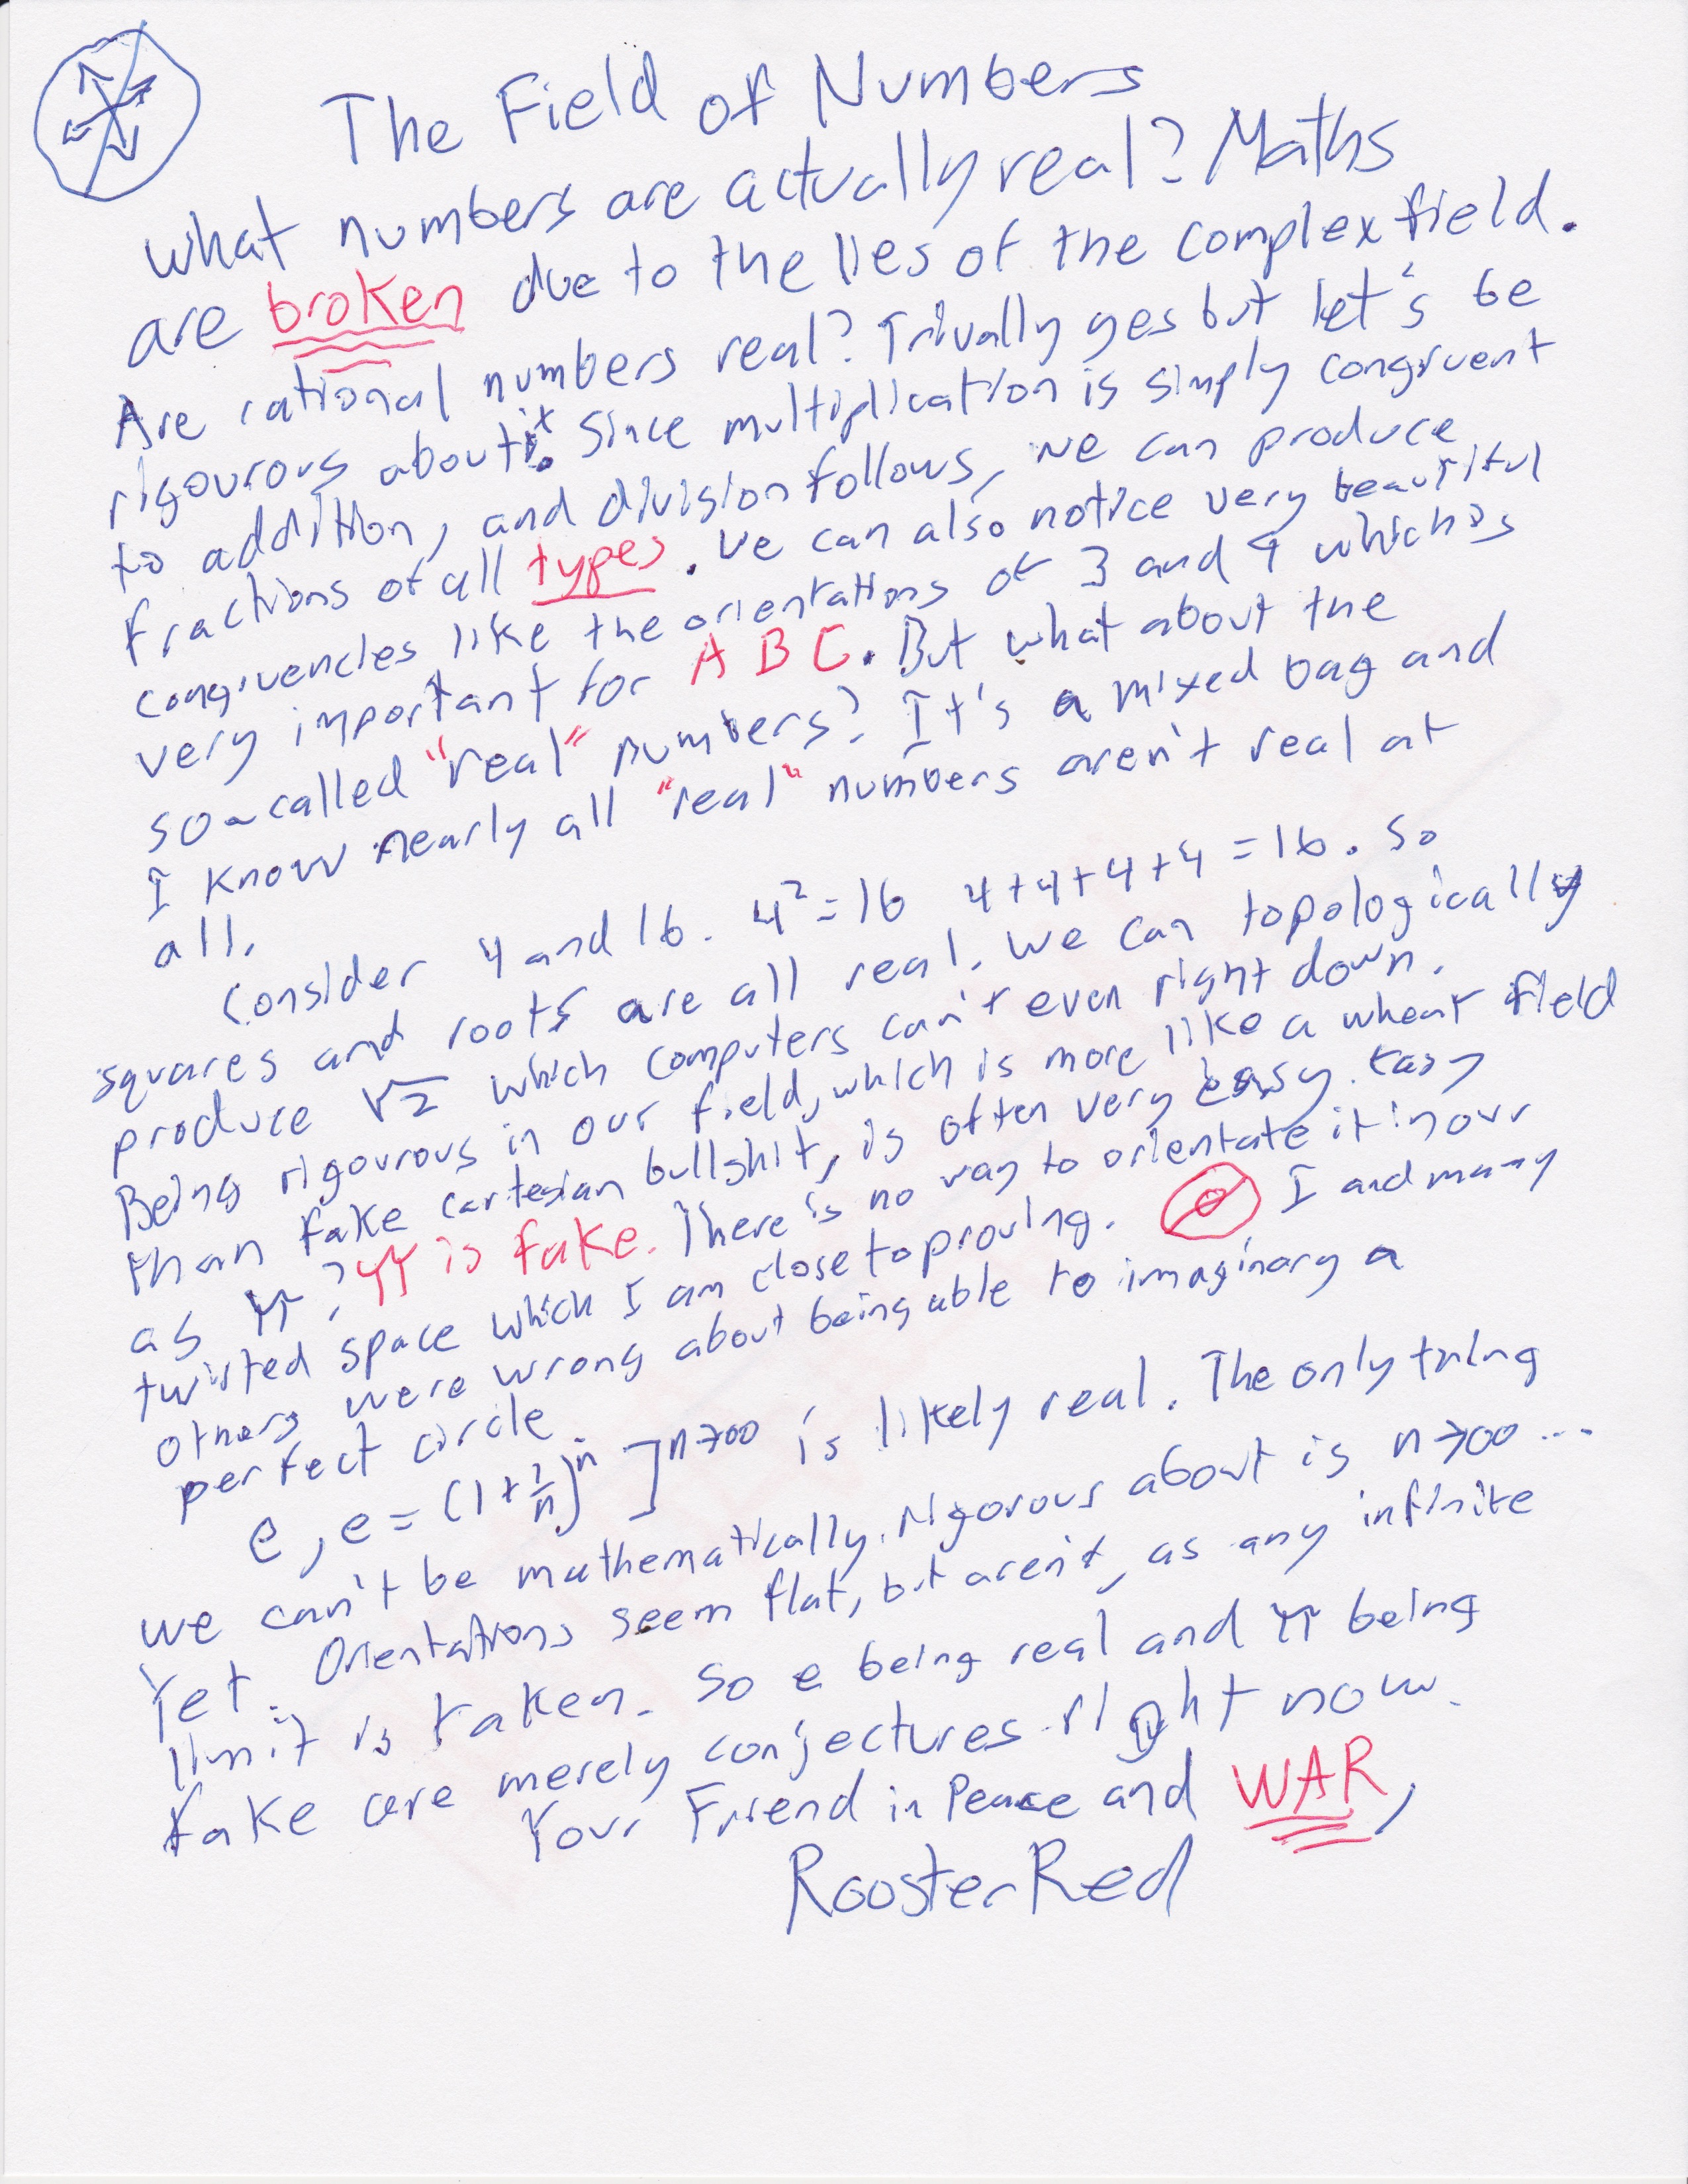 The Field of Numbers
What numbers are actually real? Maths
are broken due to the lies of the complex field.
Are rational numbers real? Trivally yes but let's be
rigourous about it. Since multiplication is simply congruent
to addition, and division follows, we can produce
fractions of all types. We can also notice very beautiful
congruencies like the orientations of 3 and 4 which is
very important for A B C. But what about the
so-called "real" numbers? It's a mixed bag and
I know nearly all "real" numbers aren't real at
all.
Consider 4 and 16. 4²=16 4+4+4+4=16. So
squares and roots are all real. We can topologically
produce √2 which computers can't even right down.
Being rigourous in our field, which is more like a wheat field
than fake cartesian bullshit, is often very easy. Easy
as π? π is fake. There is no way to orientate it in our
twisted space which I am close to proving. I and many
others were wrong about being able to imaginary a
perfect circle.
e, e = (1+1/n)ⁿ ]ⁿ→∞ is likely real. The only thing
we can't be mathematically rigorous about is n→∞ ...
Yet. Orientations seem flat, but aren't, as any infinite
limit is taken. So e being real and π being
fake are merely conjectures right now.
Your Friend in Peace and WAR,
Rooster Red